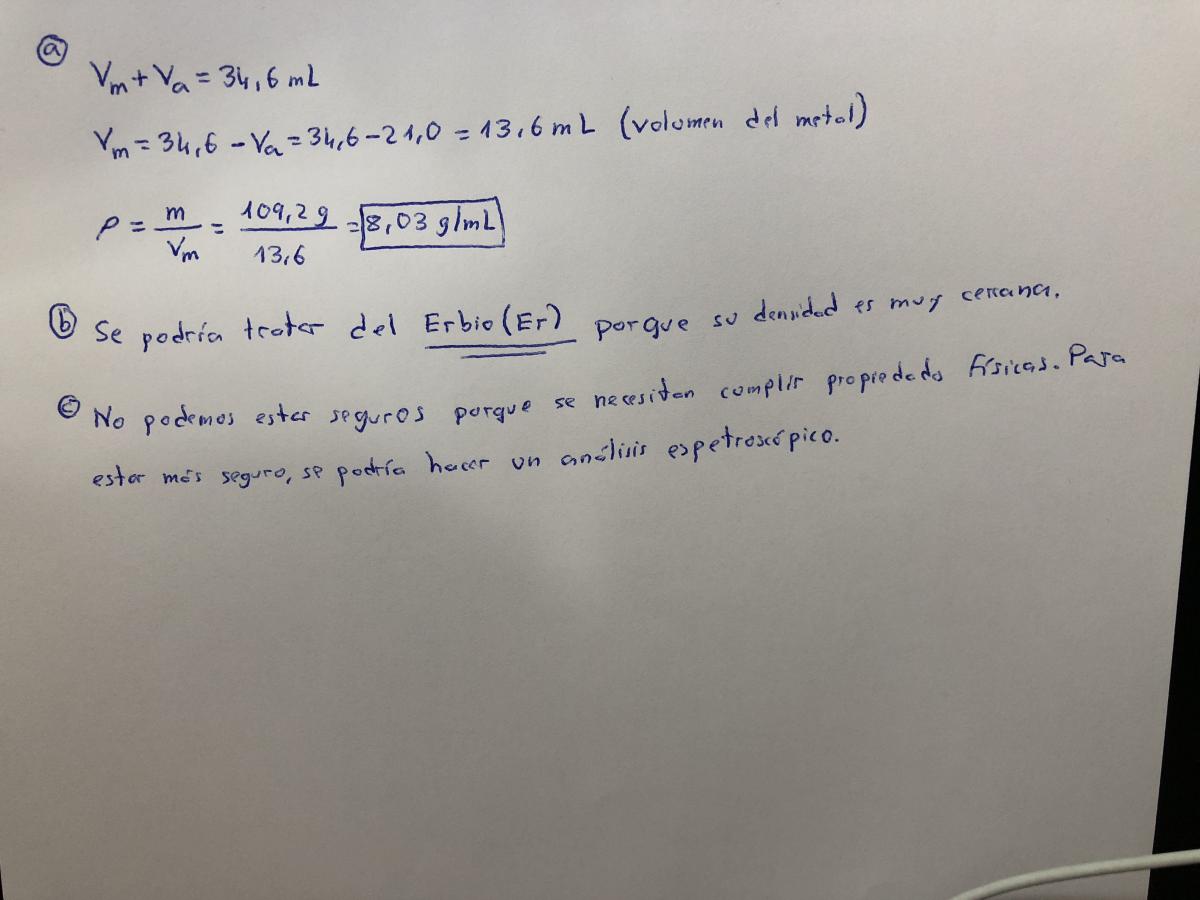 ⓐ
Vₘ + Vₐ = 34,6 mL
Vₘ = 34,6 - Vₐ = 34,6 - 21,0 = 13,6 mL (volumen del metal)
ρ = m/Vₘ = 109,2 g/13,6 = 8,03 g/mL
ⓑ Se podría tratar del Erbio (Er) porque su densidad es muy cercana.
ⓒ No podemos estar seguros porque se necesitan cumplir propiedads físicas. Para
estar más seguro, se podría hacer un análisis espetroscópico.